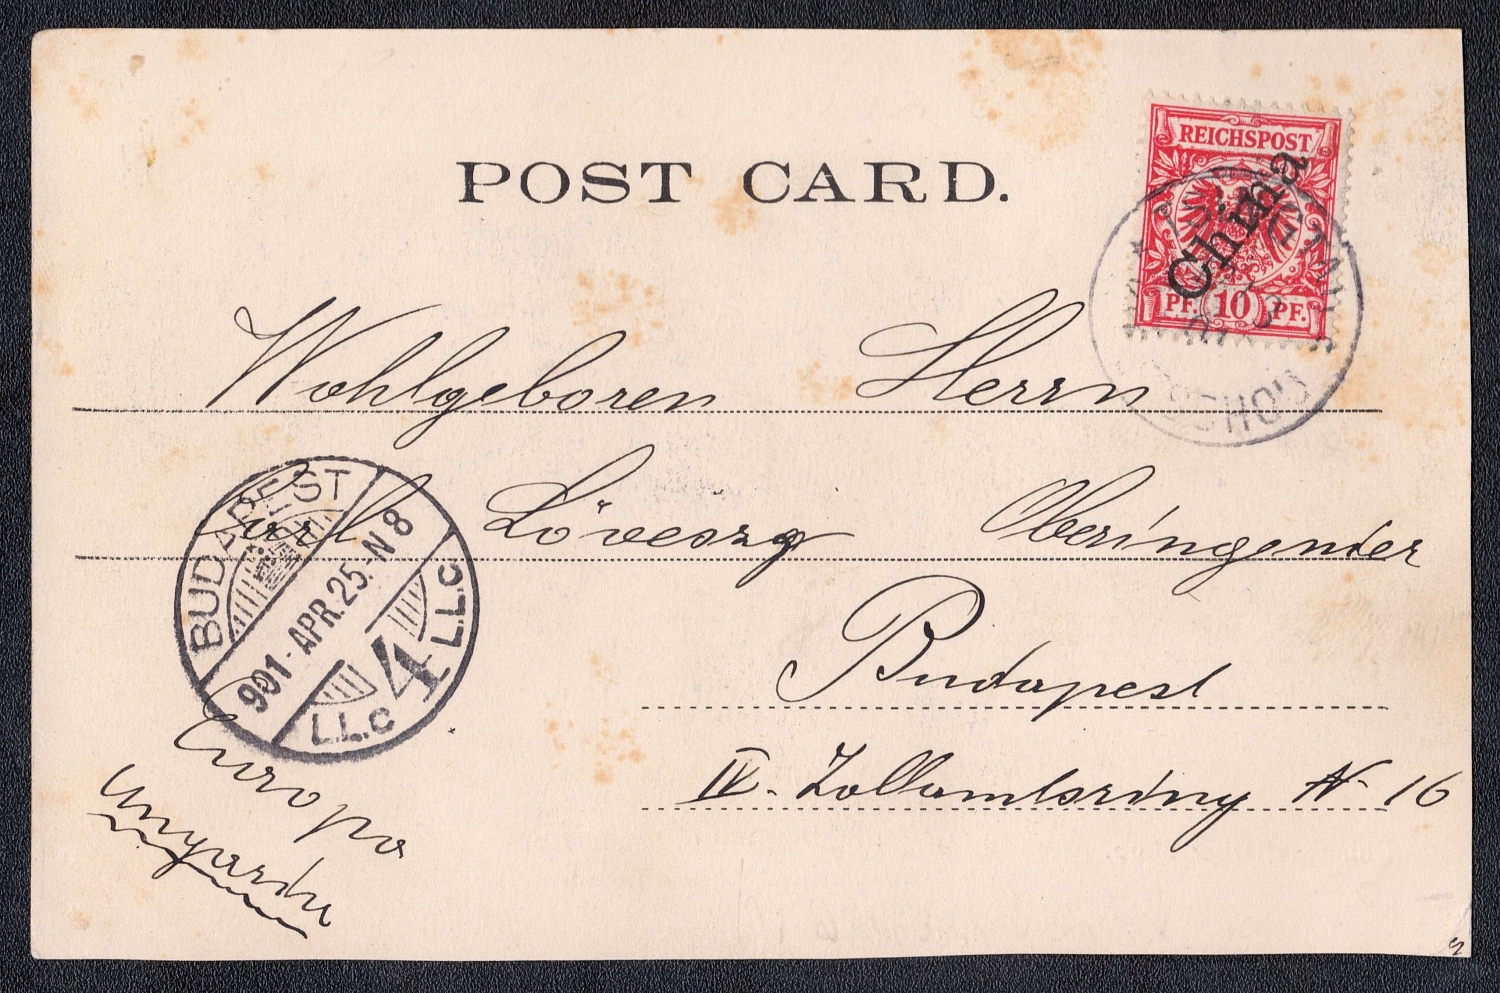 POST CARD.
REICHSPOST
China
PF. 10 PF.
Wohlgeboren Herrn
Carl Löveszy Oberingender
Budapest
IV. Zollamtsring N 16
BUDAPEST
901-APR.25.-N8
4
L.L.C
L.L.C
Europa
Ungarn